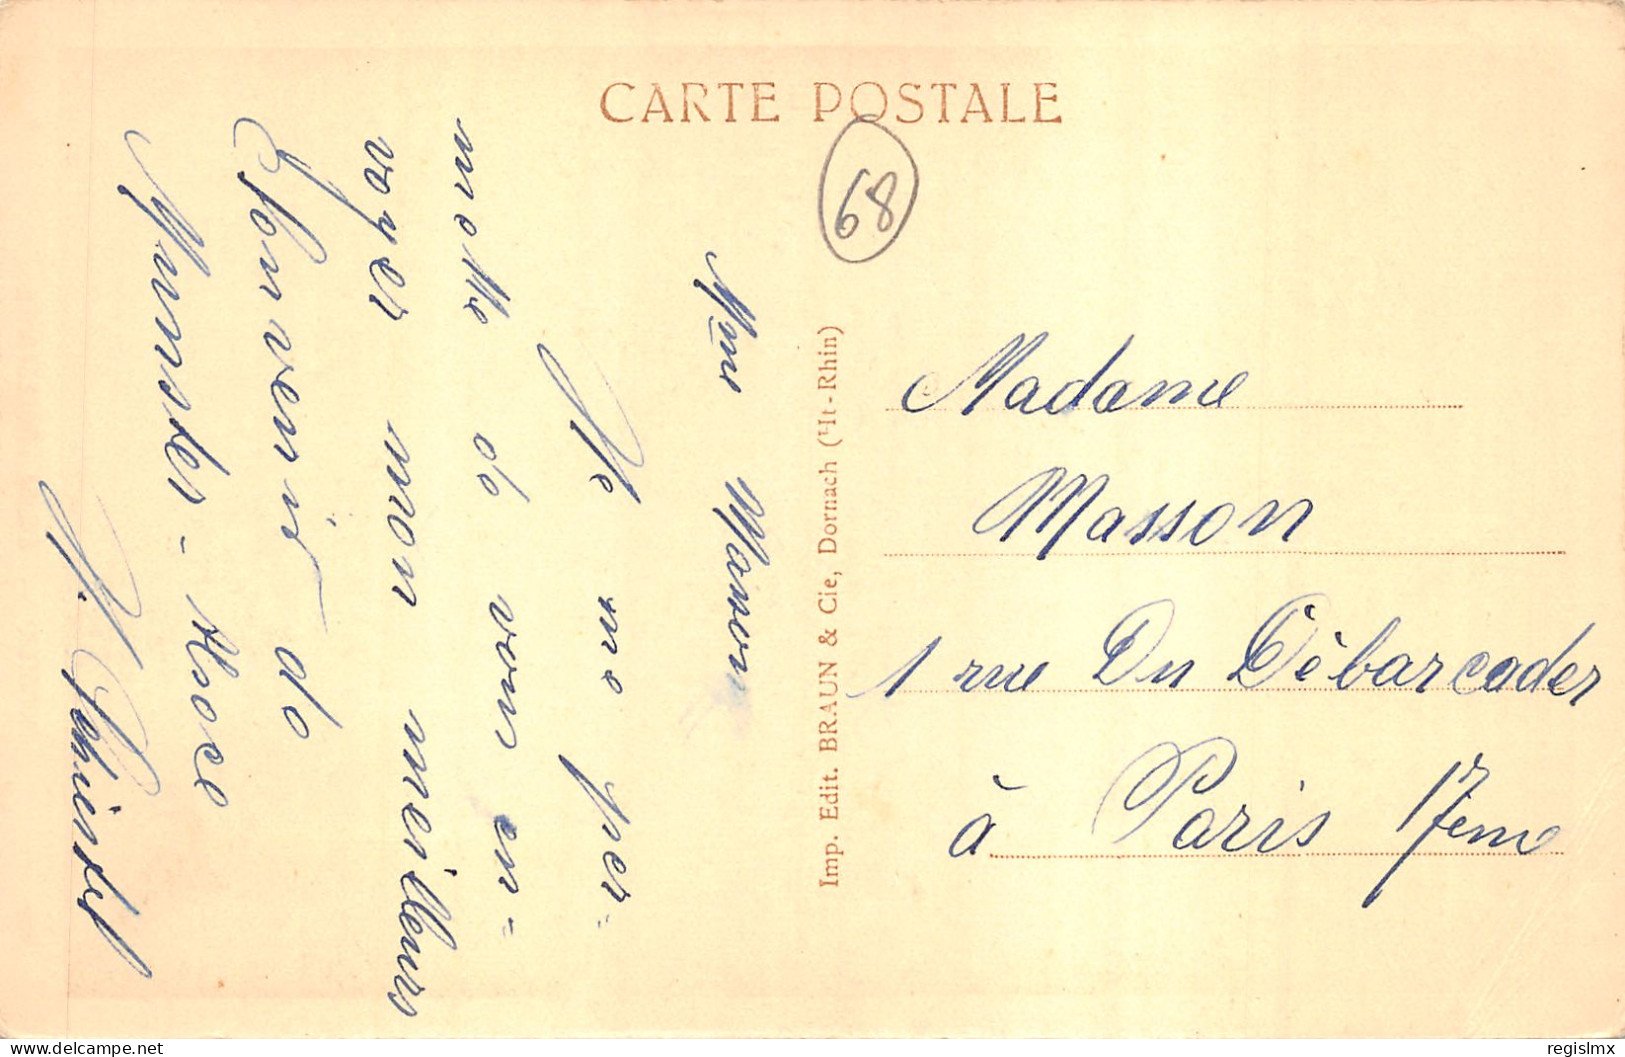 CARTE POSTALE
68
Mme Masson
Je me per=
mette de vous en=
voyer mon meilleurs
Souvenir de
Munster - Alsace
Imp. Edit. BRAUN & Cie, Dornach (Ht-Rhin)
Madame
Masson
1 rue Du Débarcader
à Paris 17eme
www.delcampe.net
regislmx